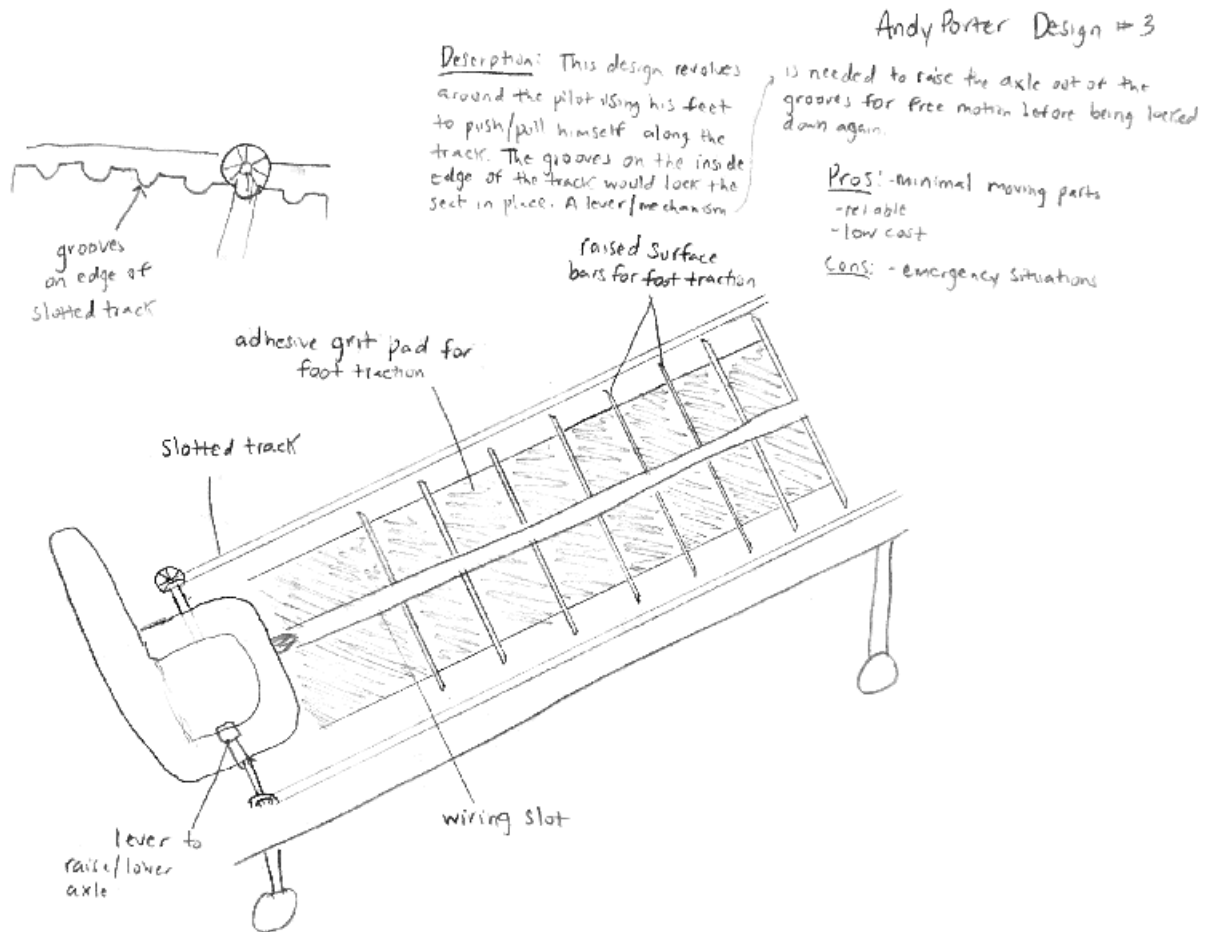 Andy Porter Design #3
Description: This design revolves
around the pilot using his feet
to push/pull himself along the
track. The grooves on the inside
edge of the track would lock the
seat in place. A lever/mechanism
is needed to raise the axle out of the
grooves for free motion before being locked
down again.
Pros: -minimal moving parts
-reliable
-low cost
Cons: -emergency situations
grooves
on edge of
slotted track
raised surface
bars for foot traction
adhesive grit pad for
foot traction
Slotted track
wiring slot
lever to
raise/lower
axle